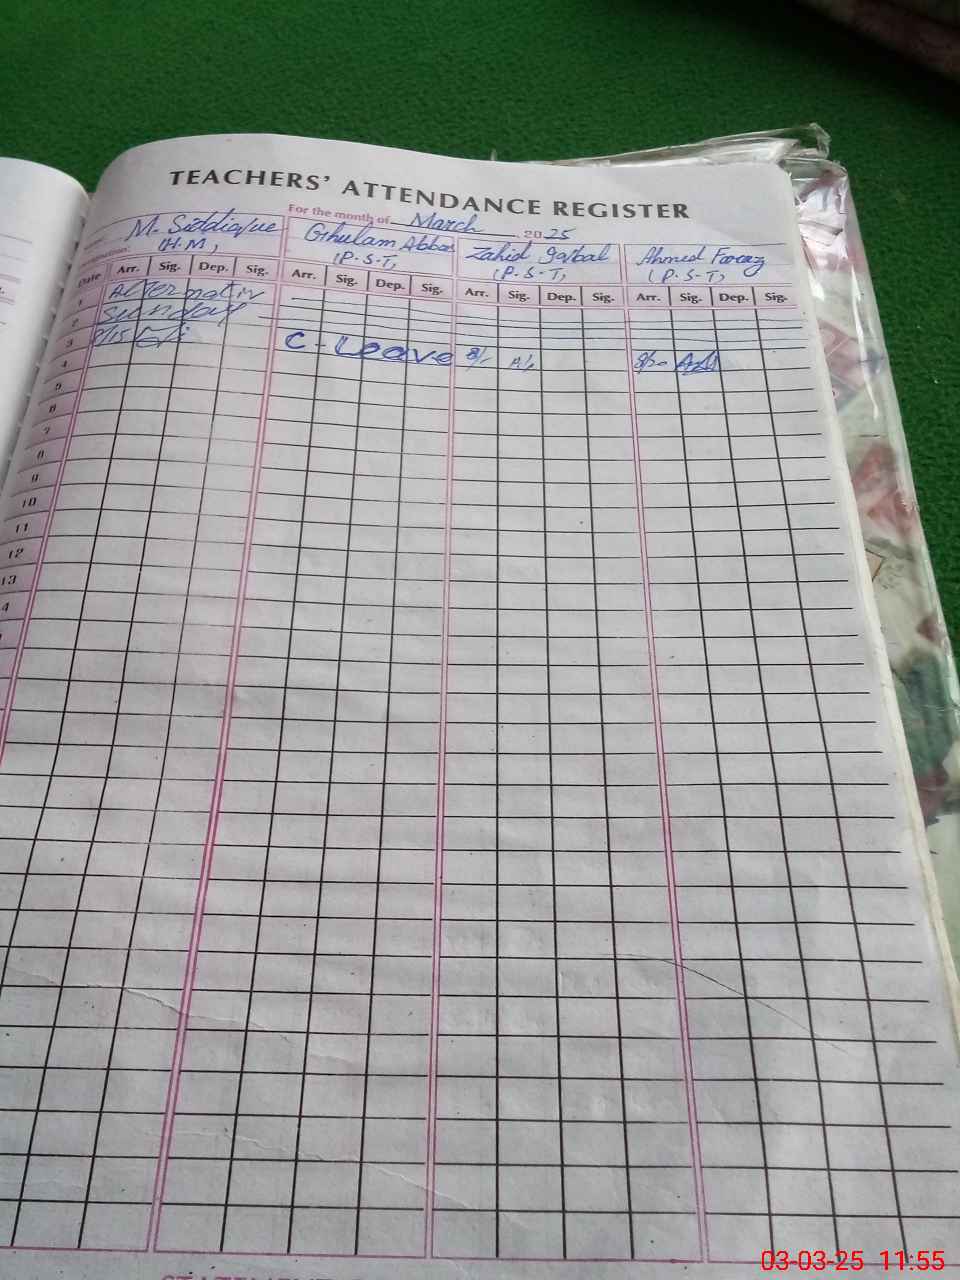 TEACHERS' ATTENDANCE REGISTER
For the month of March 2025
M. Siddique Ghulam Abbas Zahid Iqbal Ahmed Faraz
(H.M) (P.S.T) (P.S.T) (P.S.T)
Date Arr. Sig. Dep. Sig. Arr. Sig. Dep. Sig. Arr. Sig. Dep. Sig. Arr. Sig. Dep. Sig.
1
2 Sunday
3 8/15 C - Leave
4
5
6
7
8
9
10
11
12
13
03-03-25 11:55